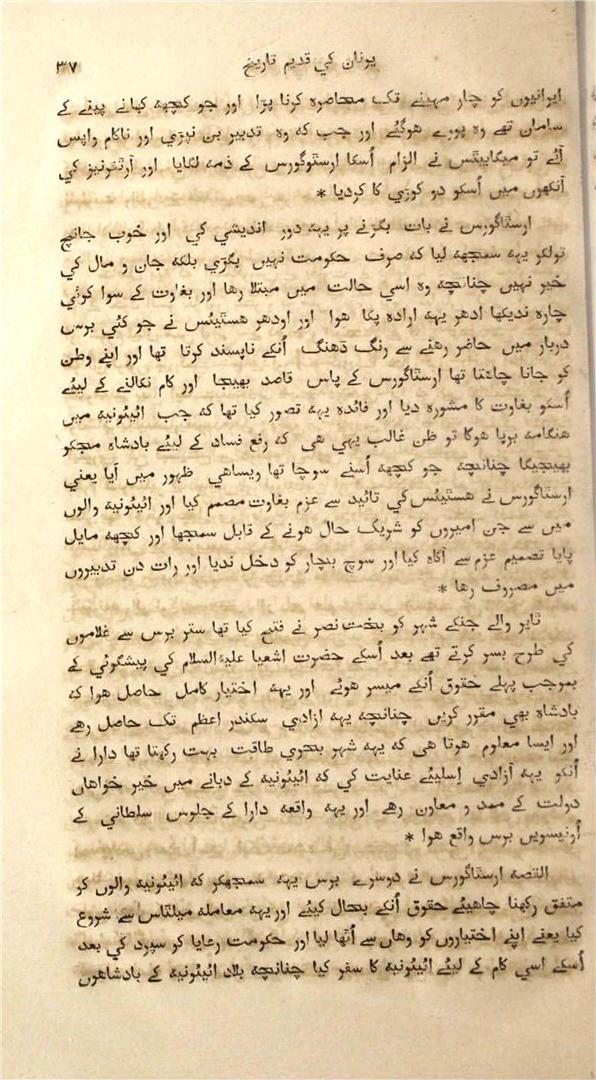 یونان کي قدیم تاریخ ۳۷
ایرانیوں کو چار مہینے تک محاصرہ کرنا پڑا اور جو کچھہ کھانے پینے کے
سامان تھے وہ پورے هوگئے اور جب کہ وہ تدبیر بن نپڑي اور ناکام واپس
آئے تو میگابیٹس نے الزام اُسکا ارسٹوگورس کے ذمہ لگایا اور آرٹفرنیز کي
آنکھوں میں اُسکو دو کوڑي کا کردیا *
ارسٹاگورس نے بات بگڑنے پر یہہ دور اندیشي کي اور خوب جانچ
تولکر یہہ سمجھہ لیا کہ صرف حکومت نہیں بگڑي بلکہ جان و مال کي
خیر نہیں چنانچہ وہ اسي حالت میں مبتلا رها اور بغاوت کے سوا کوئي
چارہ ندیکھا ادھر یہہ ارادہ پکا هوا اور اودھر هسٹیئس نے جو کئي برس
دربار میں حاضر رهنے سے رنگ ڈهنگ اُنکے ناپسند کرتا تھا اور اپنے وطن
کو جانا چاهتا تھا ارسٹاگورس کے پاس قاصد بھیجا اور کام نکالنے کے لیئے
اُسکو بغاوت کا مشورہ دیا اور فائدہ یہہ تصور کیا تھا کہ جب ائیئونیہ میں
هنگامہ برپا هوگا تو ظن غالب یہي هی کہ رفع فساد کے لیئے بادشاہ مجکو
بھیجیگا چنانچہ جو کچھہ اُسنے سوچا تھا ویساهي ظہور میں آیا یعني
ارسٹاگورس نے هسٹیئس کي تائید سے عزم بغاوت مصمم کیا اور ائیئونیہ والوں
میں سے جن امیروں کو شریک حال هونے کے قابل سمجھا اور کچھہ مایل
پایا تصمیم عزم سے آگاہ کیا اور سوچ بچار کو دخل ندیا اور رات دن تدبیروں
میں مصروف رها *
ٹایر والے جنکے شہر کو بخت نصر نے فتح کیا تھا ستر برس سے غلاموں
کي طرح بسر کرتے تھے بعد اُسکے حضرت اشعیا علیہ‌السلام کي پیشگوئي کے
بموجب پہلے حقوق اُنکے میسر هوئے اور یہہ اختیار کامل حاصل هوا کہ
بادشاہ بھي مقرر کریں چنانچہ یہہ ازادي سکندر اعظم تک حاصل رهے
اور ایسا معلوم هوتا هی کہ یہہ شہر بحري طاقت بہت رکھتا تھا دارا نے
اُنکو یہہ آزادي اِسلیئے عنایت کي کہ ائیئونیہ کے دبانے میں خیر خواهاں
دولت کے ممد و معاون رهے اور یہہ واقعہ دارا کے جلوس سلطاني کے
اُونیسویں برس واقع هوا *
القصہ ارسٹاگورس نے دوسرے برس یہہ سمجھکر کہ ائیئونیہ والوں کو
متفق رکھنا چاهیئے حقوق اُنکے بحال کیئے اور یہہ معاملہ میلٹاس سے شروع
کیا یعنے اپنے اختیاروں کو وهاں سے اُٹھا لیا اور حکومت رعایا کو سپرد کي بعد
اُسکے اسي کام کے لیئے ائیئونیہ کا سفر کیا چنانچہ بلاد ائیئونیہ کے بادشاهوں